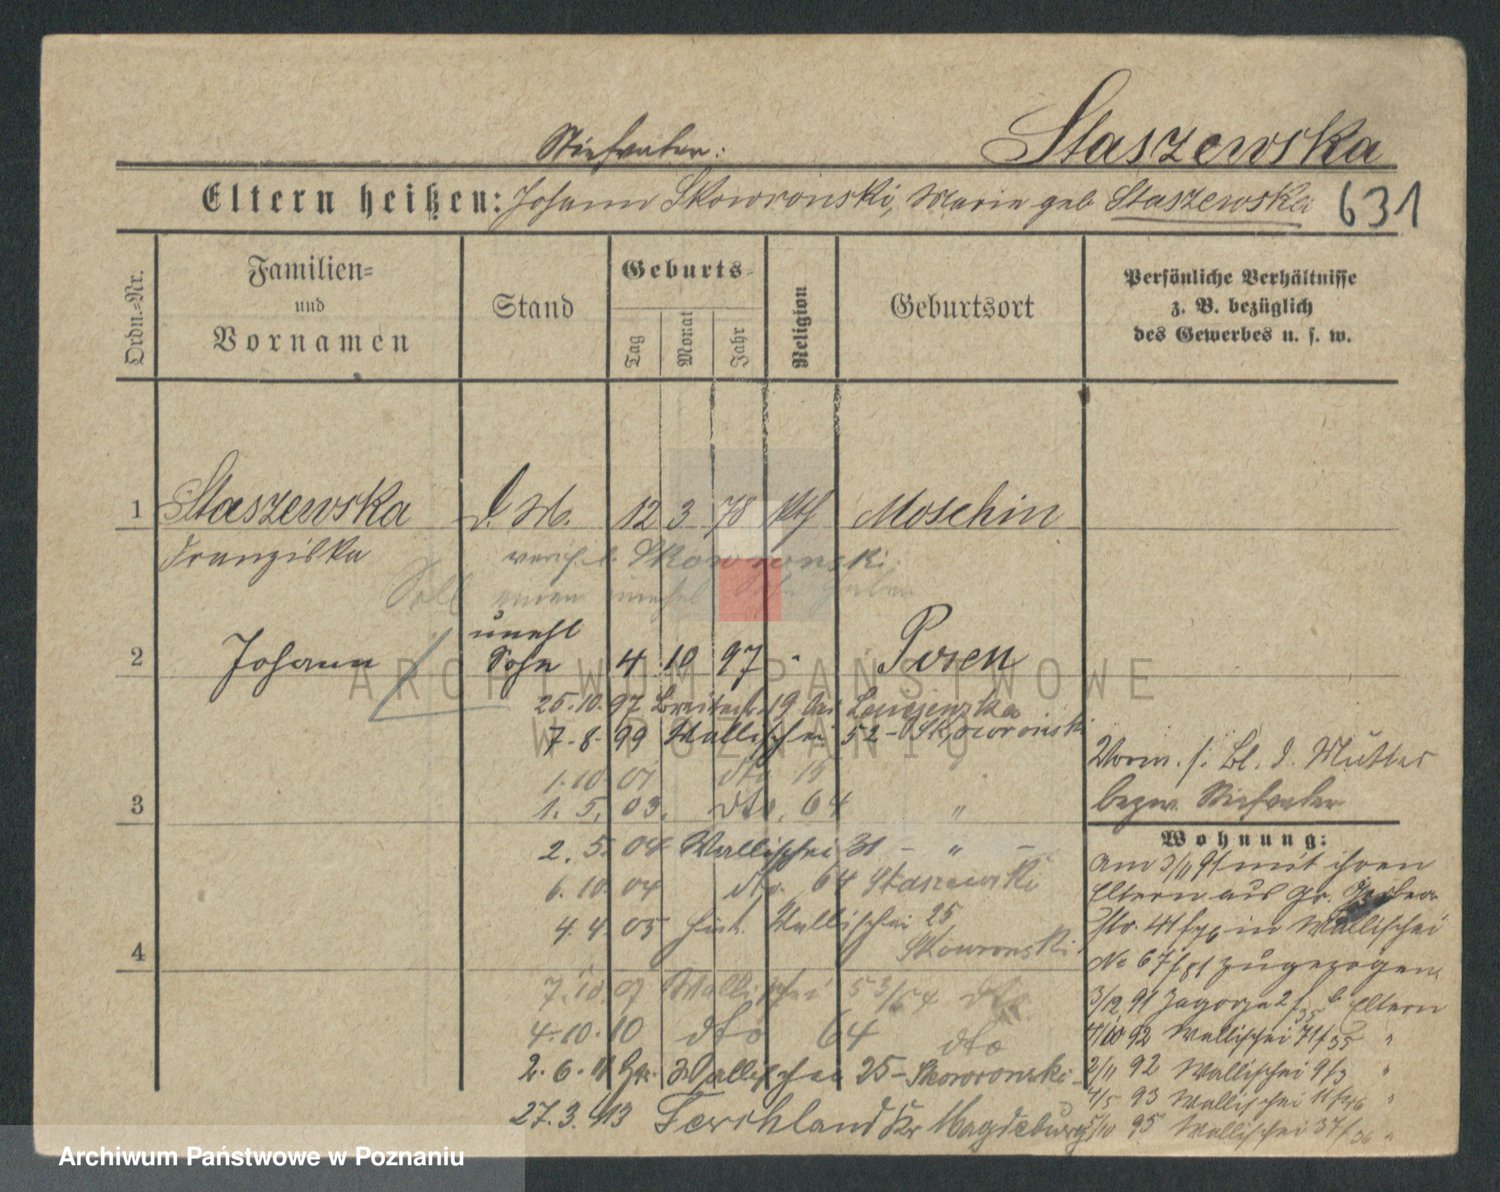 Staszewska
Stiefvater:
Eltern heißen: Johann Skowronski, Marie geb Staszewska
631
Ordn.=Nr.
Familien=
und
Vornamen
Stand
Geburts=
Tag
Monat
Jahr
Religion
Geburtsort
Persönliche Verhältnisse
z. B. bezüglich
des Gewerbes u. s. w.
1 Staszewska d. M. 12 3 78 kth Moschin
Franziska
Skowronski
Soll einen unehel
unehl
2 Johann Sohn 4 10 97 " Posen
ARCHIWUM PAŃSTWOWE
W POZNANIU
25.10.97 Breitestr. 19 bei
7.8.99 Wallischei 52 - Skowronski
1.10.01 dto 15 "
3
1.5.03. dto. 64 "
2.5.04 Wallischei 31 - " -
6.10.04 dto. 64 Staszewski
4.4.05 Wallischei 25
Skowronski
4
7.10.07 Wallischei 53/54 dto
4.10.10 dto 64 dto
2.6.11 Gr. Wallischei 25 - Skowronski
27.3.13 Ferchland Kr Magdeburg
Vorm. s. Bl. d. Mutter
bezw. Stiefvater
Wohnung:
Am 3/11 91 mit ihren
Eltern aus Gr. Gerber
str. 41 in Wallischei
No 67 zugezogen.
3/12 91 Zagorze 2 b Eltern
4/10 92 Wallischei 71/35 "
2/11 92 Wallischei 9/3 "
4/5 93 Wallischei "
5/10 95 Wallischei 37/36 "
Archiwum Państwowe w Poznaniu